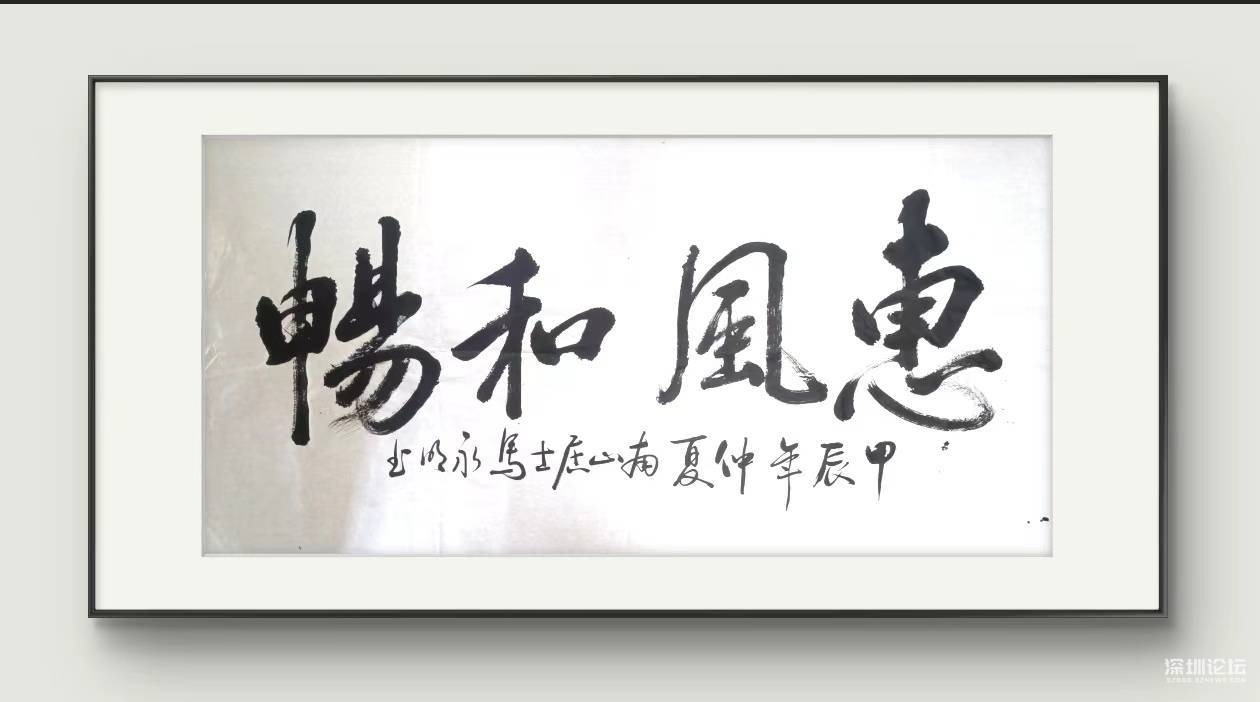 惠風和暢
甲辰年仲夏南山居士馬永明书
深圳论坛
SZBBS.SZNEWS.COM